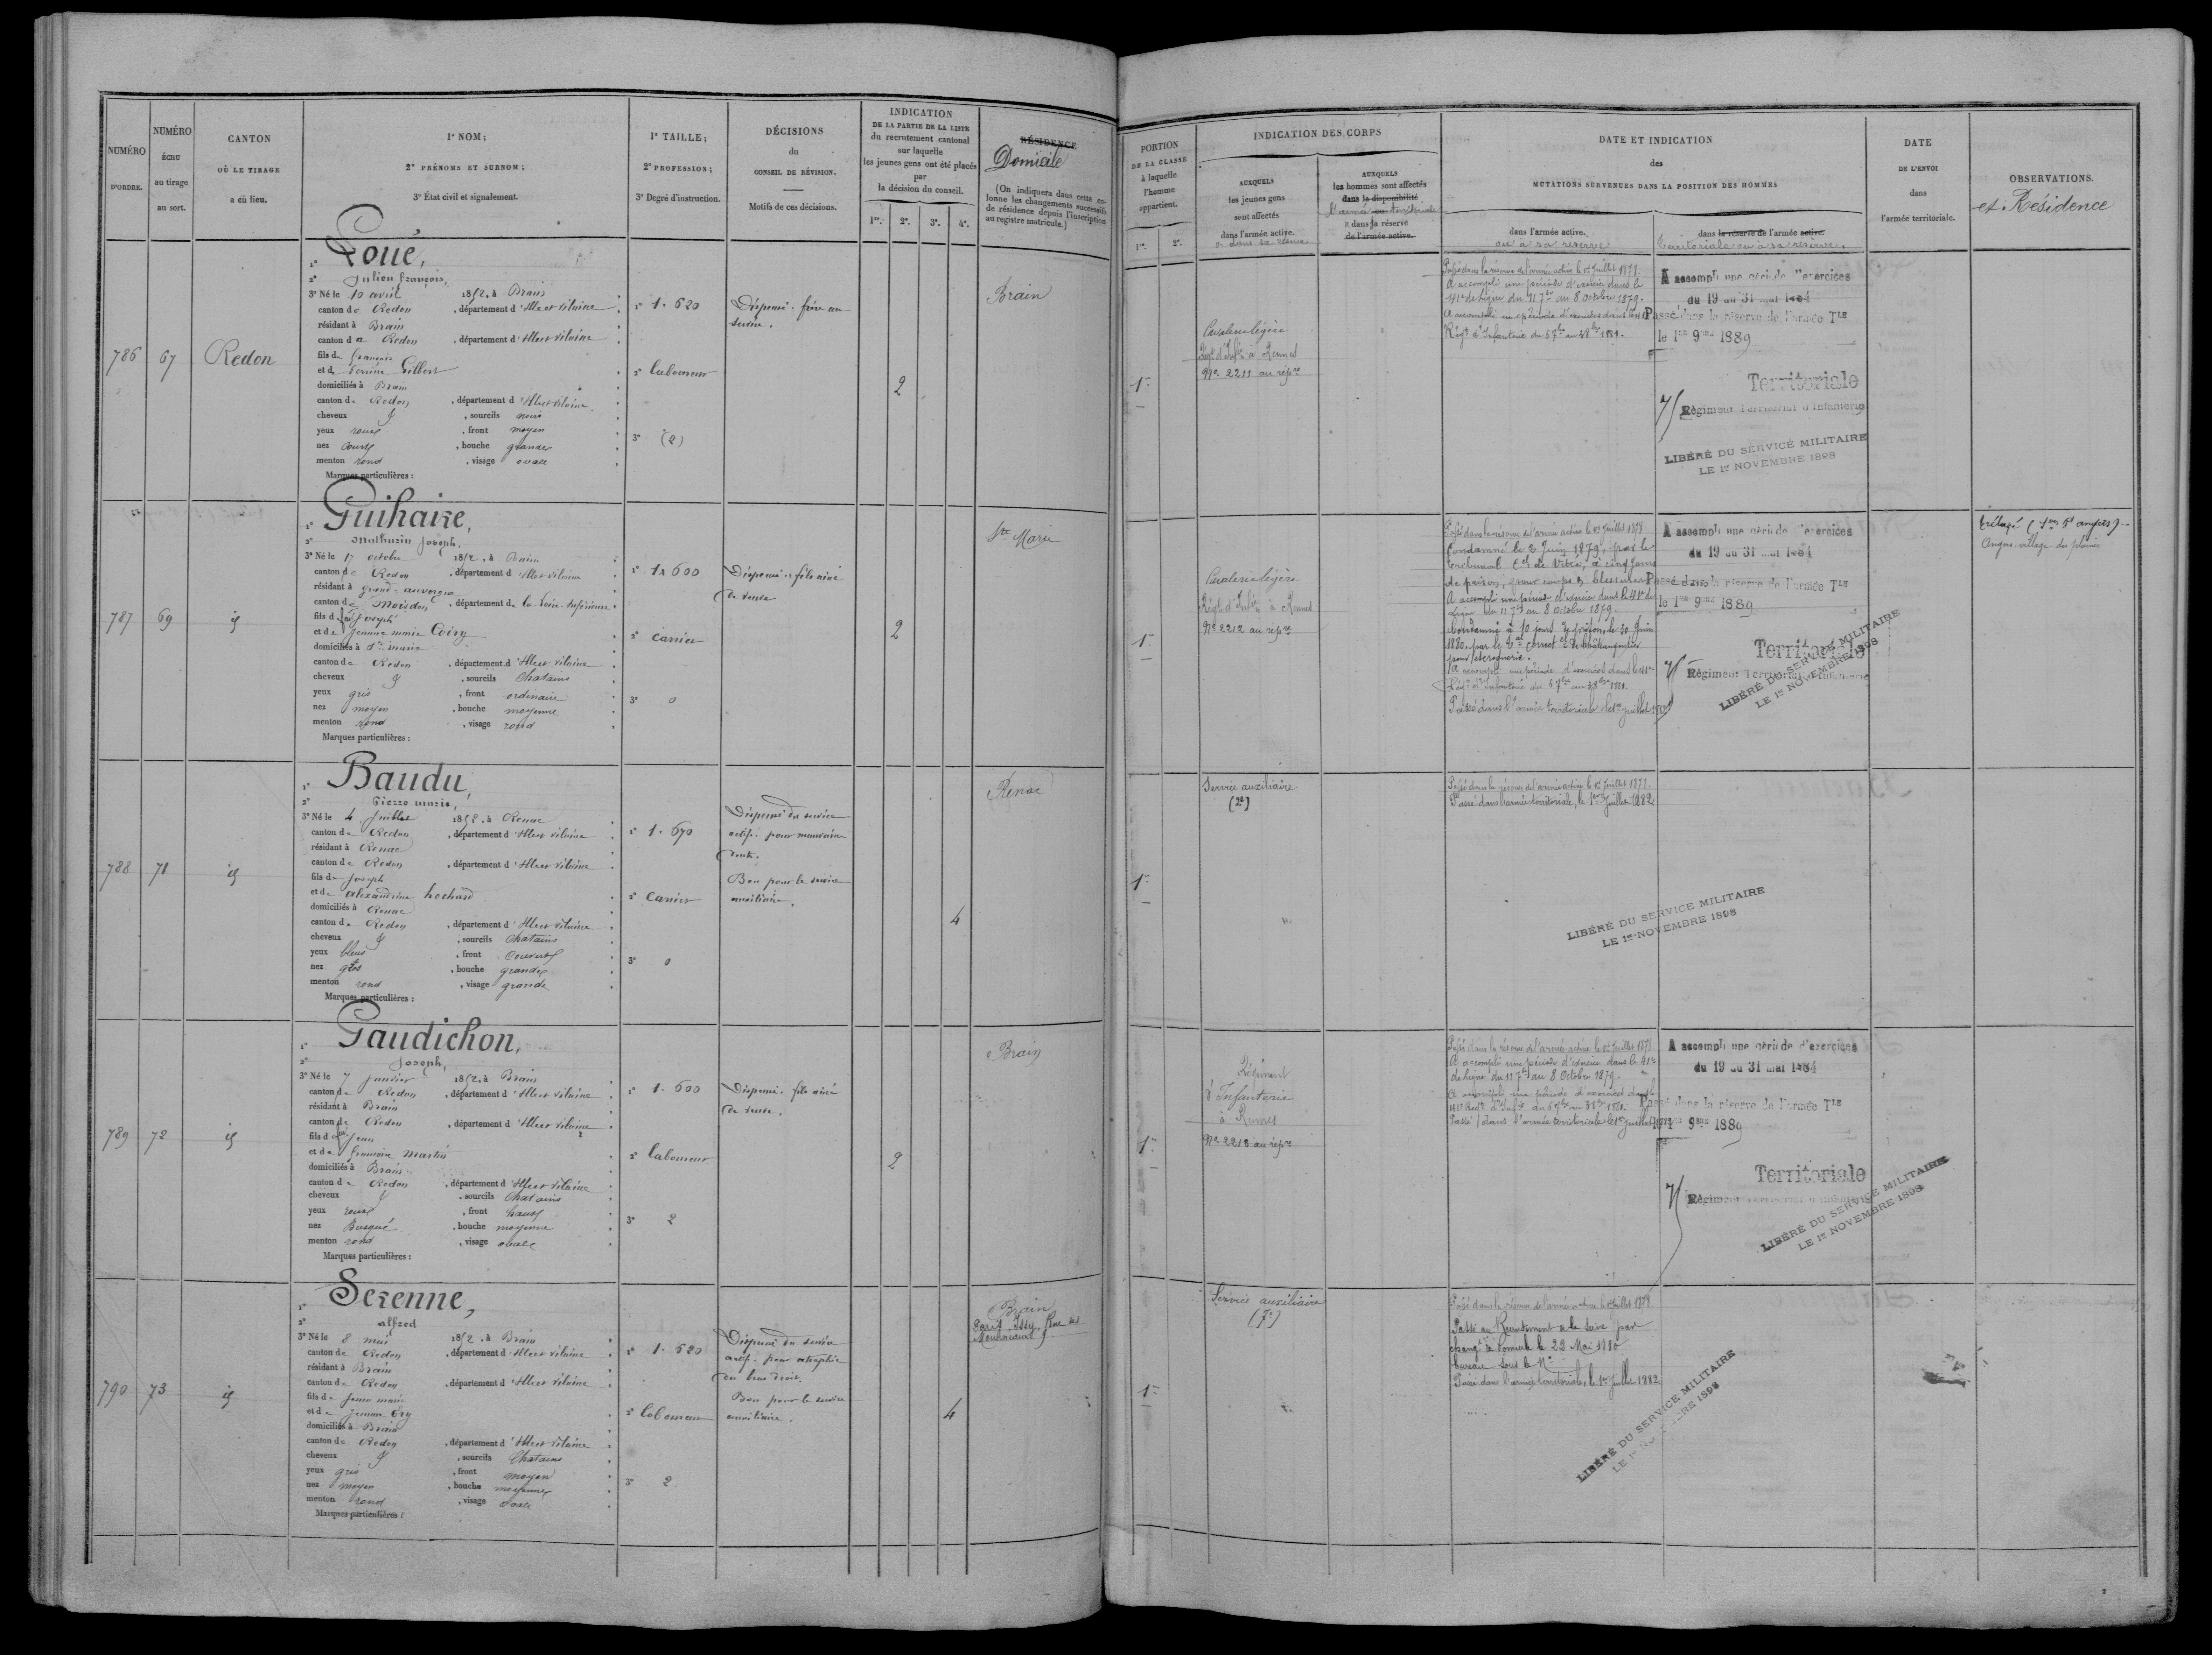 NUMÉRO
D'ORDRE.
NUMÉRO
ÉCHU
au tirage
au sort.
CANTON
OÙ LE TIRAGE
a eu lieu.
1° NOM;
2° PRÉNOMS ET SURNOM;
3° État civil et signalement.
1° TAILLE;
2° PROFESSION;
3° Degré d'instruction.
DÉCISIONS
du
CONSEIL DE RÉVISION.
Motifs de ces décisions.
INDICATION
DE LA PARTIE DE LA LISTE
du recrutement cantonal
sur laquelle
les jeunes gens ont été placés
par
la décision du conseil.
1re. 2e. 3e. 4e.
RÉSIDENCE
Domicile
(On indiquera dans cette co-
lonne les changements successifs
de résidence depuis l'inscription
au registre matricule.)
786
67
Redon
1° Loue,
2° Julien françois,
3° Né le 10 avril 1852, à Brain
canton de Redon, département d'Ille et Vilaine
résidant à Brain
canton de Redon, département d'Ille et Vilaine
fils de françois
et de Perrine Gilbert
domiciliés à Brain
canton de Redon, département d'Ille et Vilaine
cheveux &, sourcils noirs
yeux roux, front moyen
nez court, bouche grande
menton rond, visage ovale
Marques particulières :
1° 1.620
2° laboureur
3° (2)
Dispensé. frère au
service.
2
Brain
787
69
id
1° Guihaire,
2° Mathurin Joseph,
3° Né le 17 octobre 1852, à Bains
canton de Redon, département d'Ille et Vilaine
résidant à grand-auverné
canton de Moisdon, département de la Loire-Inférieure
fils de Joseph
et de Jeanne marie Coiry
domiciliés à Ste marie
canton de Redon, département d'Ille et Vilaine
cheveux &, sourcils Chatains
yeux gris, front ordinaire
nez moyen, bouche moyenne
menton rond, visage rond
Marques particulières :
1° 1.600
2° Carrier
3° 0
Dispensé. fils ainé
de veuve
2
Ste Marie
788
71
id
1° Baudu,
2° Pierre marie,
3° Né le 4 Juillet 1852, à Renac
canton de Redon, département d'Ille et Vilaine
résidant à Renac
canton de Redon, département d'Ille et Vilaine
fils de Joseph
et de alexandrine hochard
domiciliés à Renac
canton de Redon, département d'Ille et Vilaine
cheveux &, sourcils Chatains
yeux bleus, front couvert
nez gros, bouche grande
menton rond, visage grande
Marques particulières :
1° 1.670
2° Carrier
3° 0
Dispensé du service
actif. pour mauvaise
dents.
Bon pour le service
auxiliaire.
4
Renac
789
72
id
1° Gaudichon,
2° Joseph,
3° Né le 7 janvier 1852, à Brain
canton de Redon, département d'Ille et Vilaine
résidant à Brain
canton de Redon, département d'Ille et Vilaine
fils de Jean
et de françoise Martin
domiciliés à Brain
canton de Redon, département d'Ille et Vilaine
cheveux &, sourcils Chatains
yeux roux, front haut
nez Busqué, bouche moyenne
menton rond, visage ovale
Marques particulières :
1° 1.600
2° laboureur
3° 2
Dispensé. fils ainé
de veuve.
2
Brain
790
73
id
1° Serenne,
2° alfred
3° Né le 8 mai 1852, à Brain
canton de Redon, département d'Ille et Vilaine
résidant à Brain
canton de Redon, département d'Ille et Vilaine
fils de Jean marie
et de Jeanne
domiciliés à Brain
canton de Redon, département d'Ille et Vilaine
cheveux &, sourcils Chatains
yeux gris, front moyen
nez moyen, bouche moyenne
menton rond, visage ovale
Marques particulières :
1° 1.520
2° laboureur
3° 2
Dispensé du service
actif. pour atrophie
du bras droit.
Bon pour le service
auxiliaire.
4
Brain
Paris, Issy, Rue des
9
PORTION
DE LA CLASSE
à laquelle
l'homme
appartient.
1re. 2e.
INDICATION DES CORPS
AUXQUELS
les jeunes gens
sont affectés
dans l'armée active.
ou dans sa réserve
AUXQUELS
les hommes sont affectés
dans la disponibilité
l'armée territoriale
ou dans sa réserve
de l'armée active.
DATE ET INDICATION
des
MUTATIONS SURVENUES DANS LA POSITION DES HOMMES
dans l'armée active.
ou à sa réserve
dans la réserve de l'armée active.
territoriale ou à sa réserve.
DATE
DE L'ENVOI
dans
l'armée territoriale.
OBSERVATIONS.
et Résidence
1re
Cavalerie légère
Régt d'Infie à Rennes
No 2211 au répre
Passé dans la réserve de l'armée active le 1er Juillet 1878.
A accompli une période d'exercice dans le
41e de ligne du 11 7bre au 8 Octobre 1879.
A accompli une période d'exercices dans le 41e
Régt d'Infanterie du 5 7bre au 2 8bre 1881.
A accompli une période d'exercices
du 19 au 31 mai 1884
Passé dans la réserve de l'armée Tle
le 1er 9bre 1889
Territoriale
75 Régiment Territorial d'Infanterie
LIBÉRÉ DU SERVICE MILITAIRE
LE 1er NOVEMBRE 1898
1re
Cavalerie légère
Régt d'Infie à Rennes
No 2212 au répre
Passé dans la réserve de l'armée active le 1er Juillet 1878
Condamné le 3 Juin 1879, par le
tribunal Cel de Vitré, à cinq jours
de prison, pour coups & blessures
A accompli une période d'exercice dans le 41e de
ligne du 11 7bre au 8 Octobre 1879.
Condamné à 10 jours de prison, le 30 Juin
1880, par le Tal Correct. de Châteaugontier
pour escroquerie.
A accompli une période d'exercices dans le 41e
Régt d'Infanterie du 5 7bre au 2 8bre 1881.
Passé dans l'armée territoriale le 1er juillet 1882
A accompli une période d'exercices
du 19 au 31 mai 1884
Passé dans la réserve de l'armée Tle
le 1er 9bre 1889
Territoriale
75 Régiment Territorial d'Infanterie
LIBÉRÉ DU SERVICE MILITAIRE
LE 1er NOVEMBRE 1898
Trélazé
Angers village du plaine
1re
Service auxiliaire
(2e)
Passé dans la réserve de l'armée active le 1er Juillet 1878.
Passé dans l'armée territoriale, le 1er Juillet 1882
LIBÉRÉ DU SERVICE MILITAIRE
LE 1er NOVEMBRE 1898
1re
Régiment
d'Infanterie
à Rennes
No 2213 au répre
Passé dans la réserve de l'armée active le 1er Juillet 1878
A accompli une période d'exercice dans le 41e
de ligne du 11 7bre au 8 Octobre 1879.
A accompli une période d'exercices dans le
41e Régt d'Infie du 5 7bre au 2 8bre 1881.
Passé dans l'armée territoriale le 1er juillet 1882
A accompli une période d'exercices
du 19 au 31 mai 1884
Passé dans la réserve de l'armée Tle
le 1er 9bre 1889
Territoriale
75 Régiment Territorial d'Infanterie
LIBÉRÉ DU SERVICE MILITAIRE
LE 1er NOVEMBRE 1898
1re
Service auxiliaire
Passé dans la réserve de l'armée active le 1er Juillet 1878
Passé au Recrutement de la Seine par
changt de Domicile le 22 Mai 1880
bureau sous le No
Passé dans l'armée territoriale, le 1er Juillet 1882
LIBÉRÉ DU SERVICE MILITAIRE
LE 1er NOVEMBRE 1898